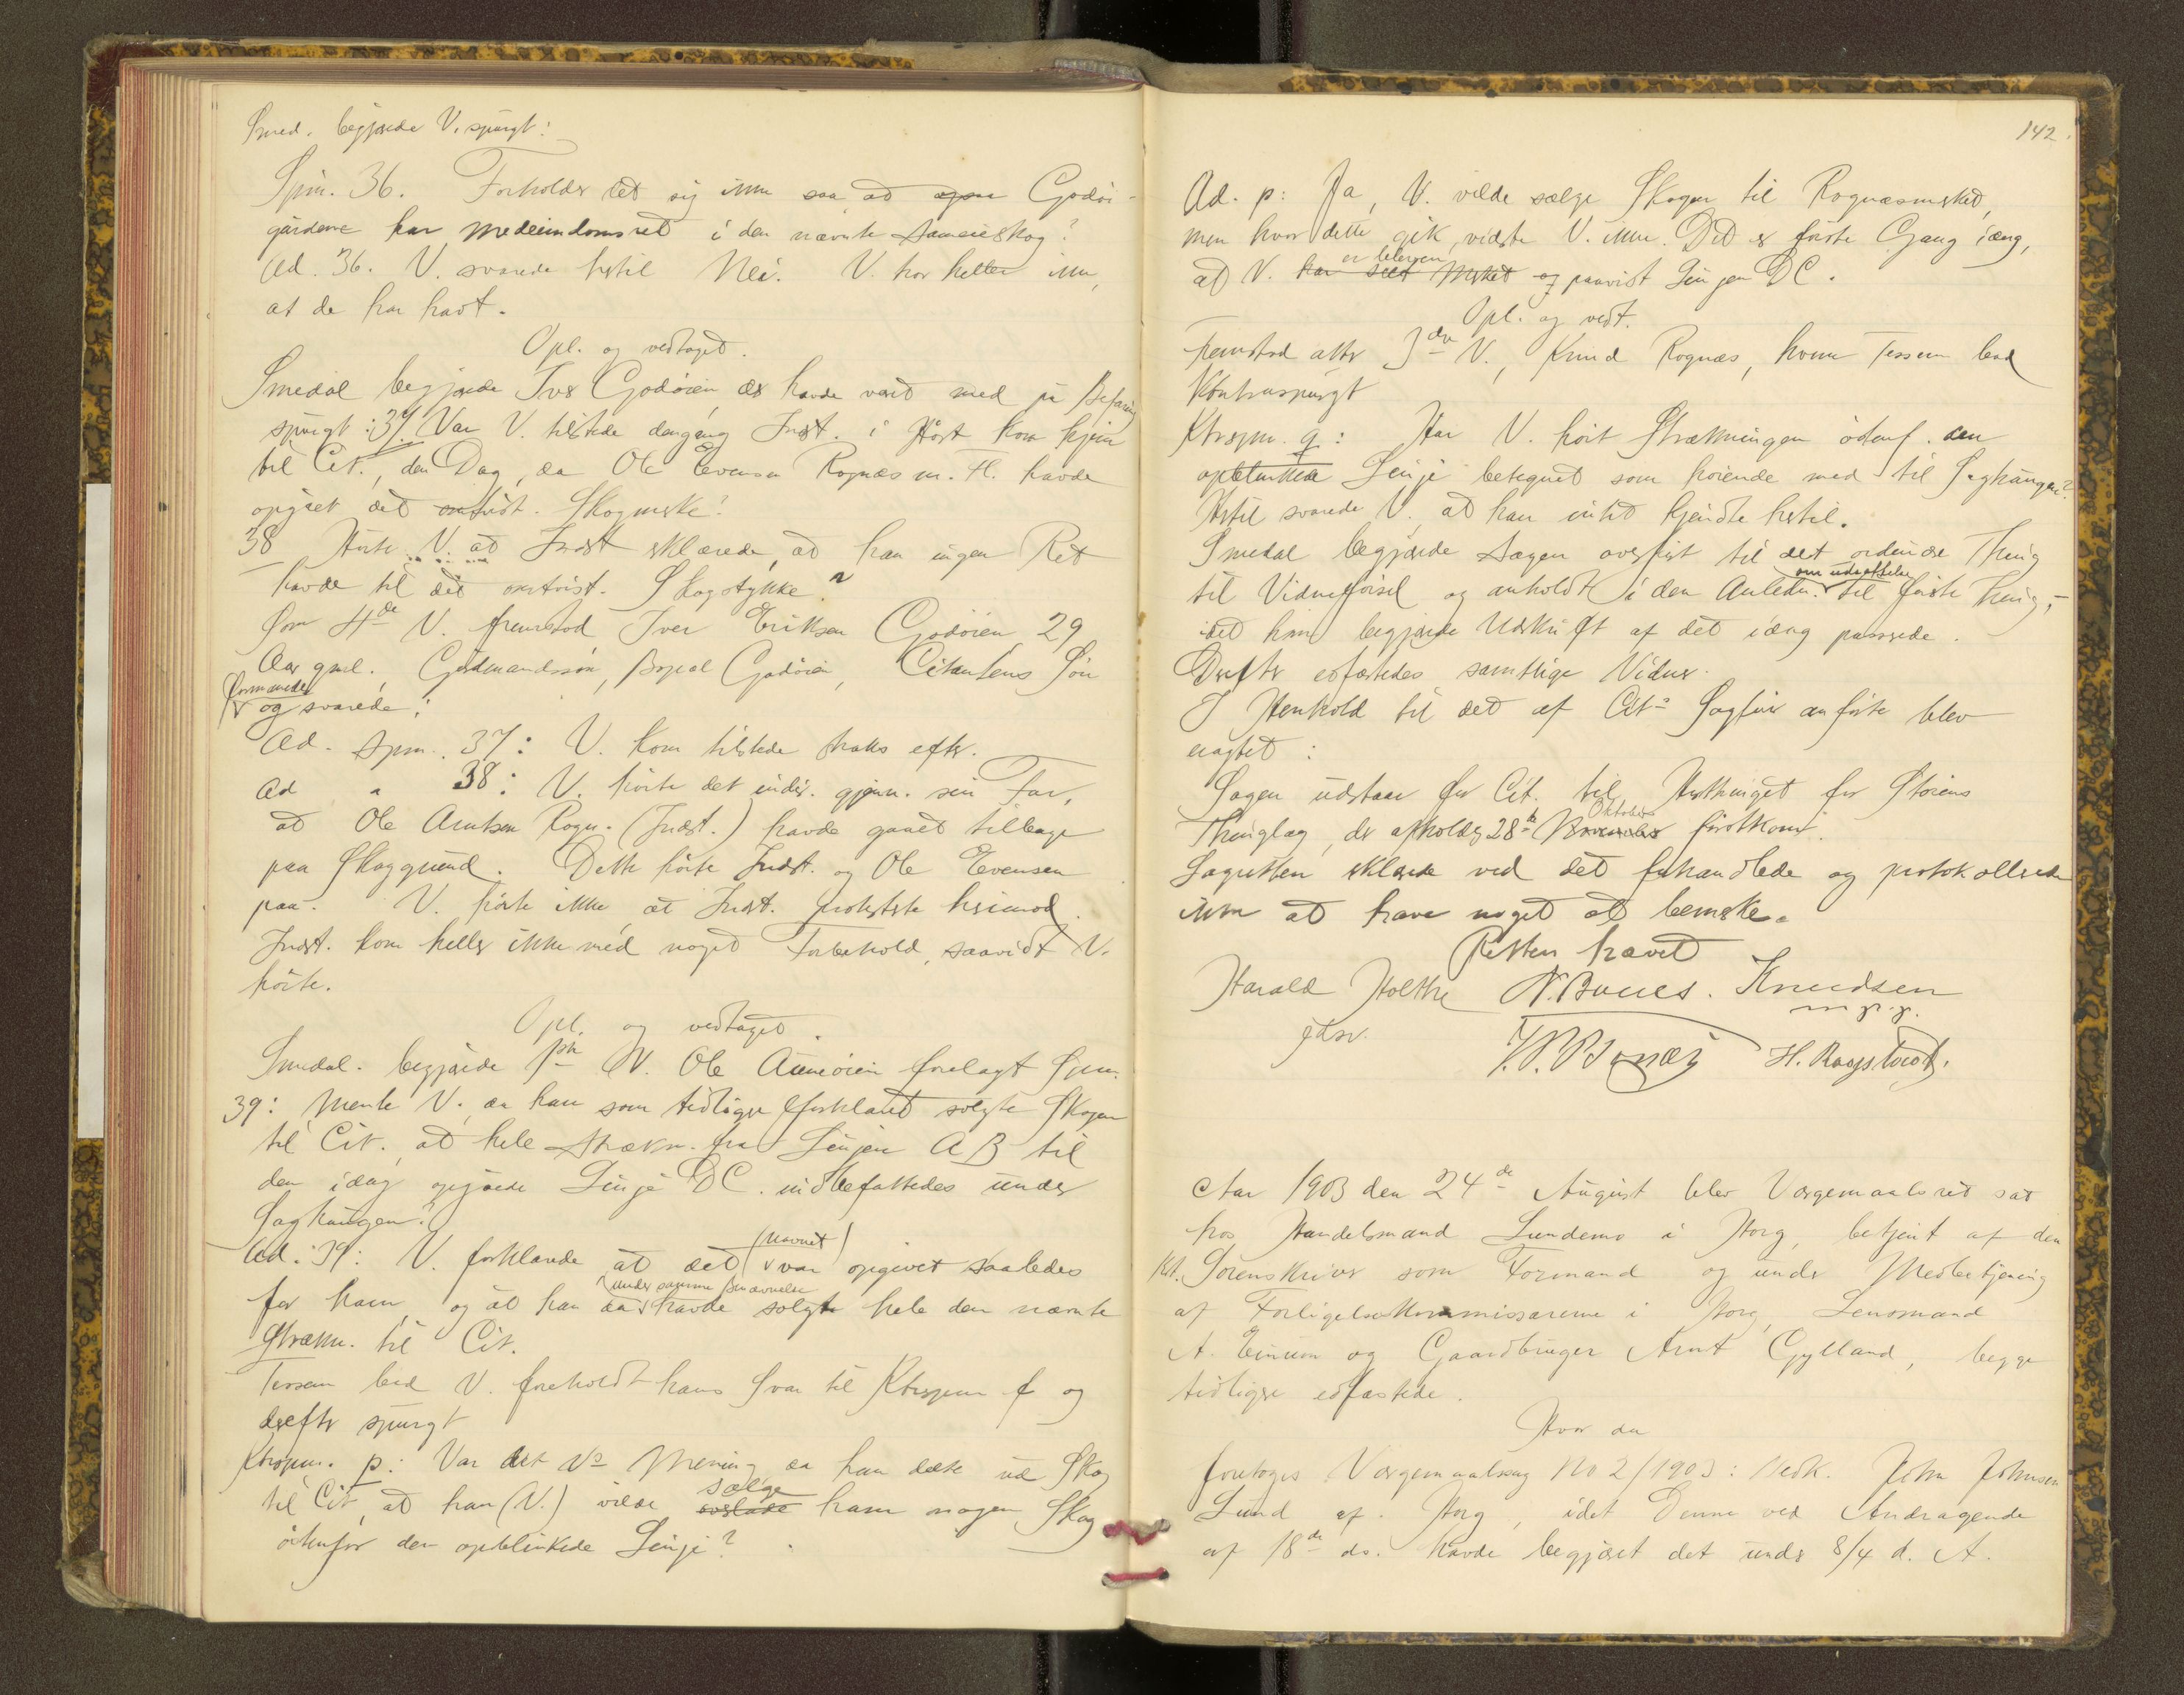 Smed. begjærede V. spurgt:
Spm. 36. Forholder det sig ikke saa, at ogsaa Godøi-
gårdene har medeiendomsret i den nævnte Sameieskog?
Ad. 36. V. svarede hertil Nei. V. hør heller ikke,
at de har havt.
Opl. og vedtaget.
Smedal begjærede Iver Godøien, der havde været med på Befaring
spurgt: 37. Var V. tilstede dengang Indst. i Høst kom hjem
til Cit., den Dag, da Ole Evensen Rognæs m. Fl. havde
opgået det omtvist. Skogmerke?
38 Hørte V. at Indst erklærede, at han ingen Ret
havde til det omtvist. Skogstykke?
Som 4de V. fremstod Iver Eriksen Godøien 29
Aar gml., Gårdmandssøn, Bopæl Godøien, Citantens Søn
formanedes
og svarede:
Ad. Spm. 37: V. kom tilstede straks efter.
Ad " 38: V. hørte det indir. gjenn. sin Far,
at Ole Arntsen Rogn. (Indst.) havde gaaet tilbage
paa Skoggrund. Dette hørte Indst. og Ole Evensen
paa. V. hørte ikke at Indst. protesterte herimod.
Indst. kom heller ikke med noget Forbehold, saavidt V.
hørte.
Opl. og vedtaget.
Smedal. begjærede 1ste V. Ole Aunøien forelagt Spm.
39: Mente V., da han som tidligere forklaret solgte Skogen
til Cit., at hele Strækn. fra Linjen AB til
den idag opgåede Linje DC. indbefattedes under
Saghaugen?
Ad. 39: V. forklarede at det (Navnet) var opgivet saaledes
for ham, og at han da under samme Benævnelse havde solgt hele den nævnte
Strækn. til Cit.
Tessem bad V. foreholdt hans Svar til Ktrspm f og
derefter spurgt
Ktrspm. p: Var det Vs Mening da han delte ud Skog
til Cit, at han (V.) vilde overlade sælge ham nogen Skog
ötenfor den opblinkede Linje?
142.
Ad. p: Ja, V. vilde sælge Skogen til Rognæsmerket,
men hvor dette gik, vidste V. ikke. Det er første Gang idag,
er bleven
at V. har seet Merket og paavist Linjen DC.
Opl. og vedt.
Fremstod atter 3die V., Knud Rognæs, hvem Tessem bad
Kontraspurgt
Ktrspm. q: Har V. hørt Strækningen ötenf. den
opblinkede Linje betegnet som hørende med til Saghaugen?
Hertil svarede V. at han intet kjendte hertil.
Smedal begjærede Sagen overført til det ordinære Thing
til Vidneførsel og anholdt i den Anledn. om udsættelse til første Thing,-
idet han begjærede Udskrift af det idag passerede.
Derefter edfæstedes samtlige Vidner.
I Henhold til det af Cits Sagfører anførte blev
eragtet:
Sagen udstaar for Cit. til Høstthinget for Størens
Thinglag, der afholdes 28de November Oktober førstkom.
Lagretten erklærede ved det forhandlede og protokollerede
ikke at have noget at bemerke.
Retten hævet
Harald Holthe N. Buues. Knudsen
m.p.p.
H. Raagstvedt.
Aar 1903 den 24de August blev Værgemaalsret sat
hos Handelsmand Lundemo i Horg, betjent af den
kst. Sorenskriver som Formand og under Medbetjening
af Forligelseskommissærerne i Horg, Lensmand
A. Einum og Gaardbruger Arnt Gylland, begge
tidligere edfæstede.
Hvor da
foretoges Værgemaalssag No 2/1903: Vedk. John Johnsen
Lund af Horg, idet Denne ved Andragende
af 18de ds. havde begjæret det under 8/4 d. A.